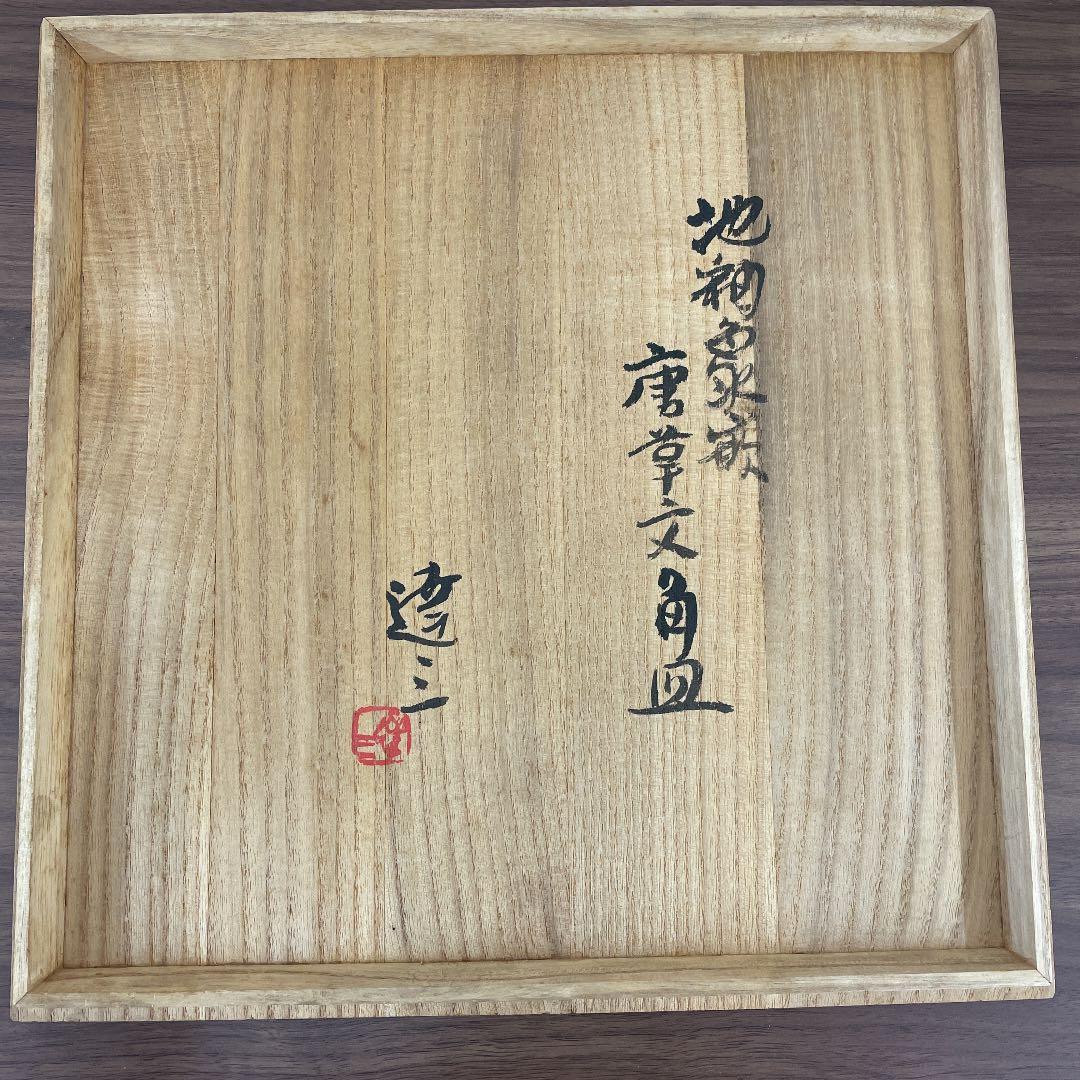 地釉象嵌
唐草文角皿
達三